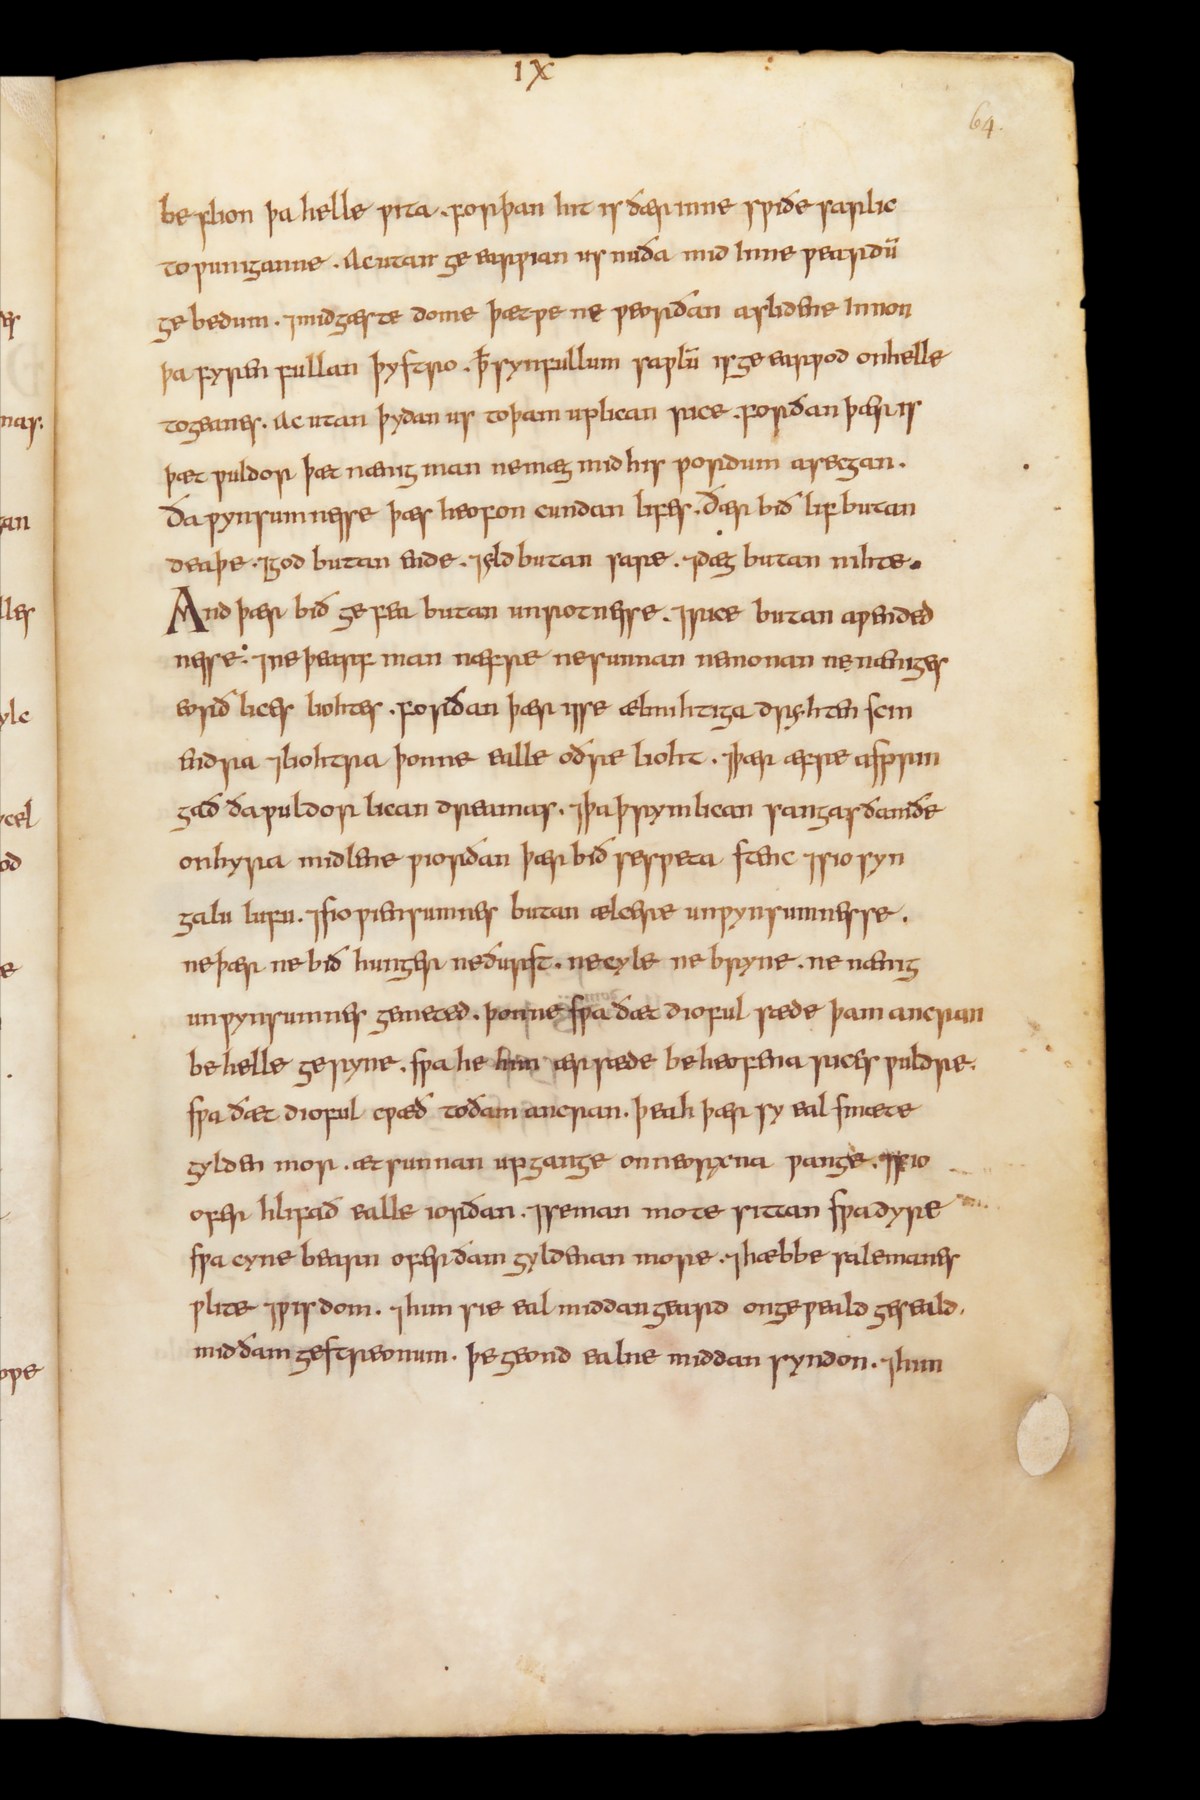 IX
64.
beflion þa helle ƿita . forþan hit is ðærinne sƿiðe sarlic
to ƿuniganne . Ac utan geearnian us niða mid Inne ƿearðū
gebedum . ⁊midgæste dome þætƿe ne ƿeorðan aslidene Innon
þa fyrenfullan þystro . þ̄ synfullum saƿlū is geearƿod onhelle
togeanes . Ac utan þydan us toþam uplican rice . forðan þær is
þæt ƿuldor þæt nænig man nemæg midhis ƿordum asecgan .
ða ƿynsumnesse þæs heofon cundan lifes . ðær bið lif butan
deaþe . ⁊god butan ende . ⁊yld butan sare . ⁊dæg butan nihte .
And þær bið gefea butan unrotnesse . ⁊rice butan aƿended
nesse . ⁊ne þearf man næfre ne sunnan nemonan ne næniges
eorðlices liohtes . forðan þær is se ælmihtiga dryhten scin
endra ⁊liohtra þonne ealle oðre lioht . ⁊þær æfre asƿrin
gað ða ƿuldorlican dreamas . ⁊þa þrymlican sangas ðamðe
onhyra midlene ƿiorðan þær bið se sƿeta stenc ⁊sio syn
galu lufu . ⁊sio ƿiensumnes butan ælcere unƿynsumnesse .
ne þær ne bið hunger neðurst . necyle ne bryne . ne nænig
unƿynsumnes gemeted . þonne sƿa ðæt dioful sæde þam ancran
be helle geryne . sƿa he him ær sæde be heofena rices ƿuldre .
sƿa ðæt dioful cƿæð toðam ancran . þeah þær sy eal smæte
gylden mor . æt sunnan upgange onneorxna ƿange . ⁊sio
ofer hlifað ealle iorðan . ⁊seman mote sittan sƿadyre
sƿa cyne bearn ofer ðam gyldenan more . ⁊hæbbe salemanes
ƿlite ⁊ƿisdom . ⁊him sie eal middangeard ongeƿeald geseald .
midðam gestreonum . þe geond ealne middan syndon . ⁊him